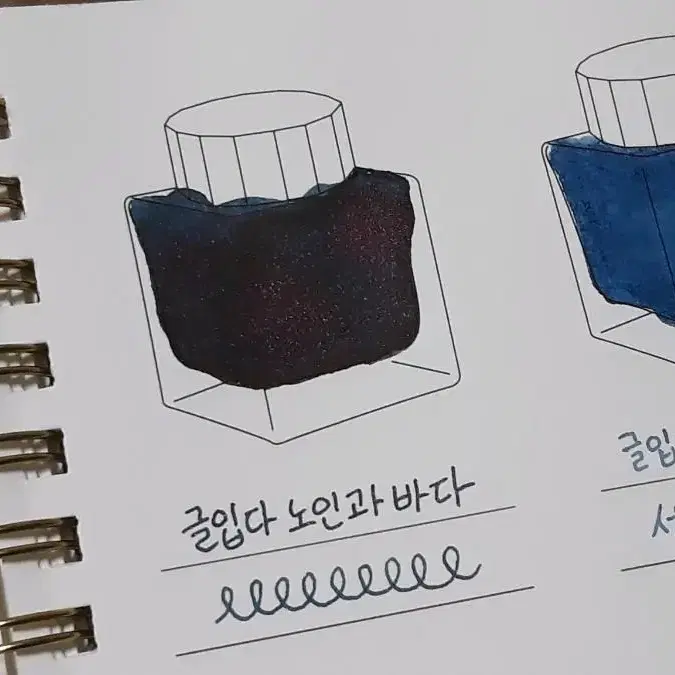 글입다 노인과 바다
글입